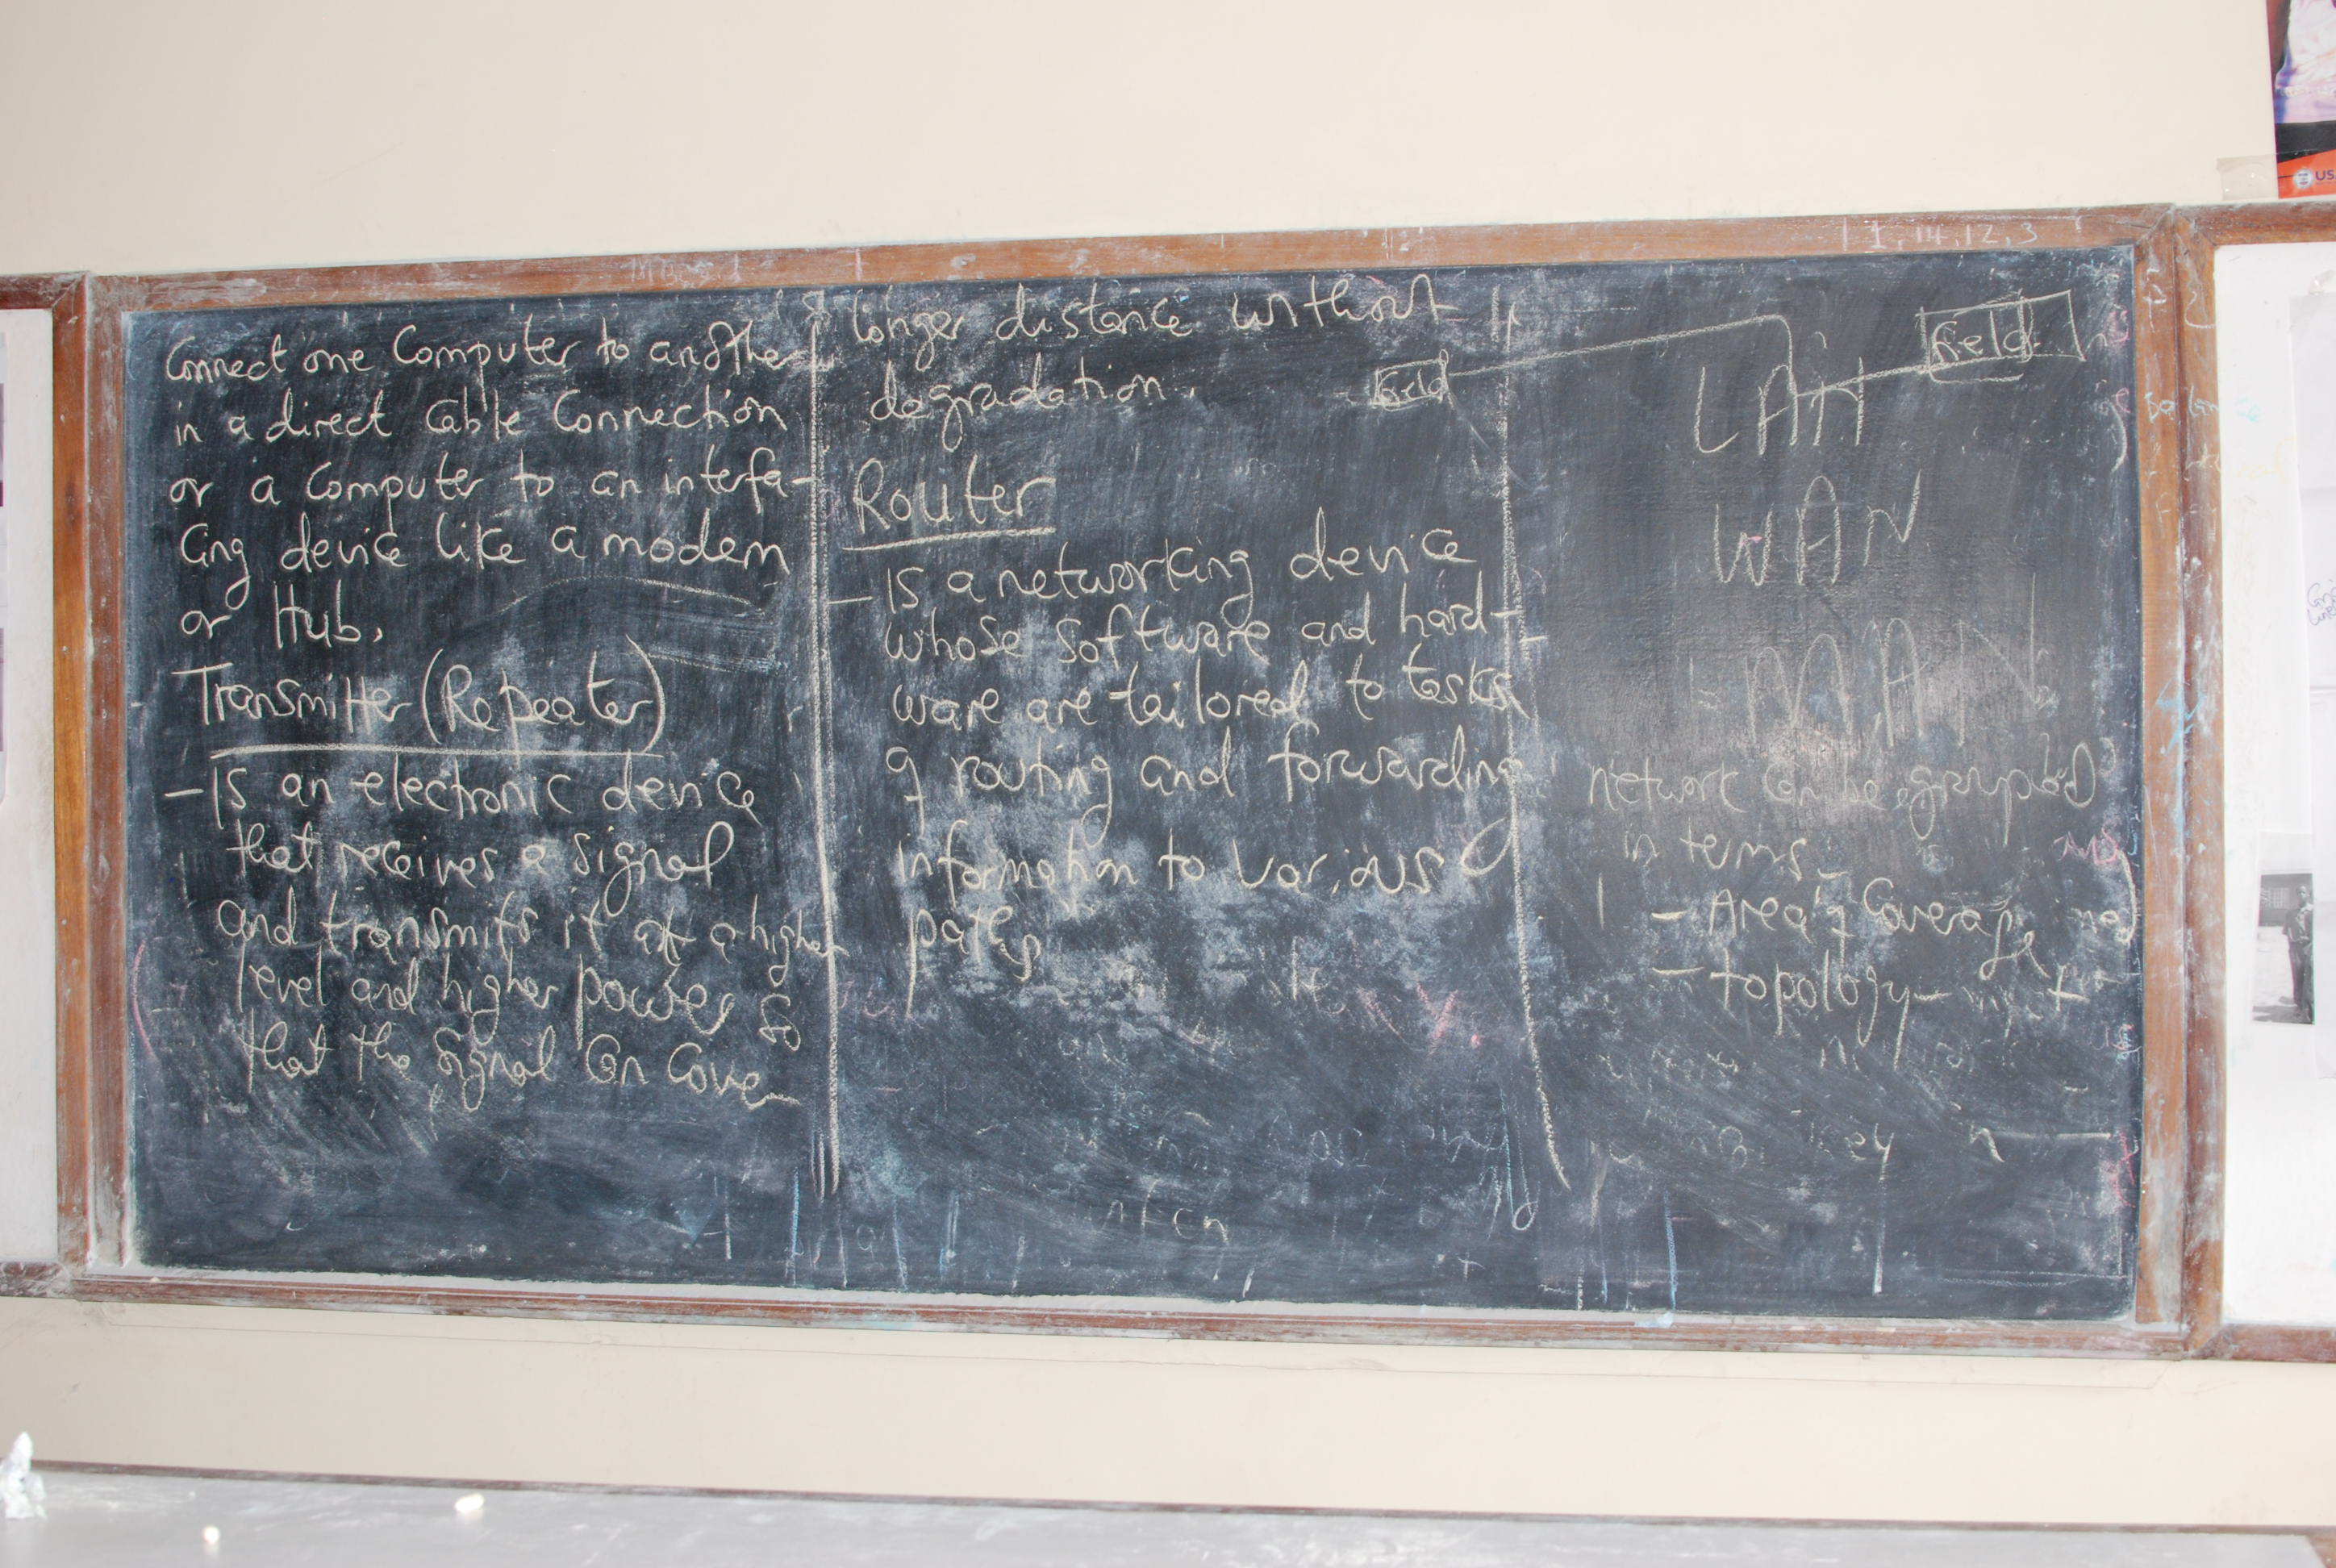 Connect one Computer to another
in a direct Cable Connection
or a Computer to an interfa-
cing device like a modem
or Hub.
Transmitter (Repeater)
- Is an electronic device
that receives a signal
and transmits it at a higher
level and higher power so
that the signal Can Cover
longer distance without
degradation.
Router
- Is a networking device
whose software and hard-
ware are tailored to tasks
of routing and forwarding
information to various
paths
field
field
LAN
WAN
MAN
network Can be grouped
in terms
- Area of Coverage
- topology
key
1, 14, 12, 3
US